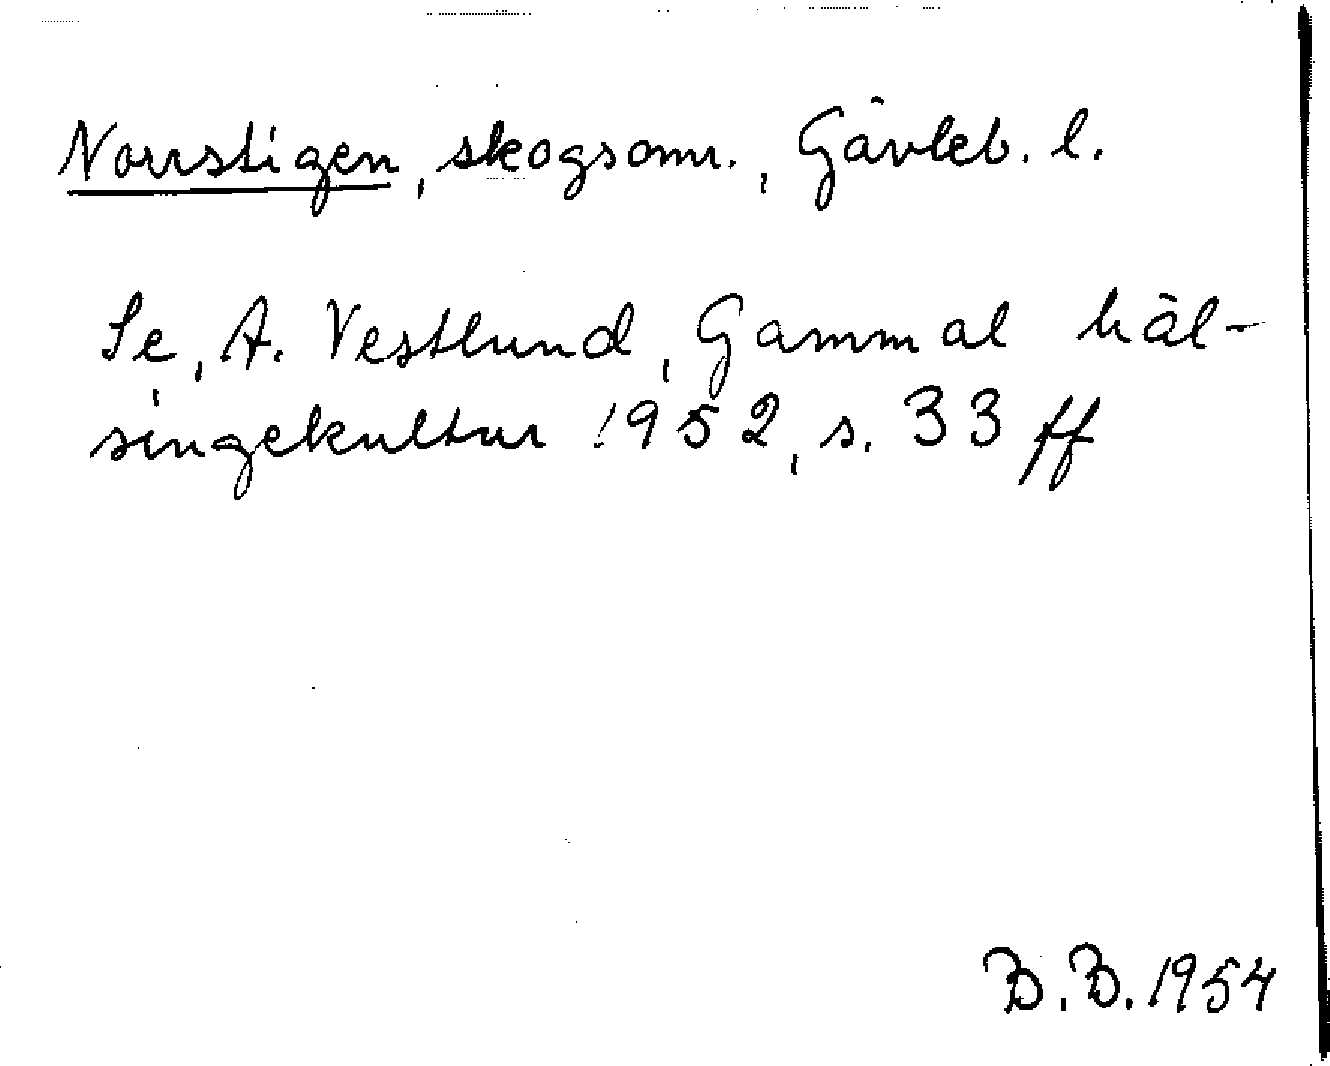 Norrstigen, skogsomr., Gävleb. l.
Se, A. Vestlund, Gammal häl-
singekultur 1952, s. 33 ff
B.B. 1954